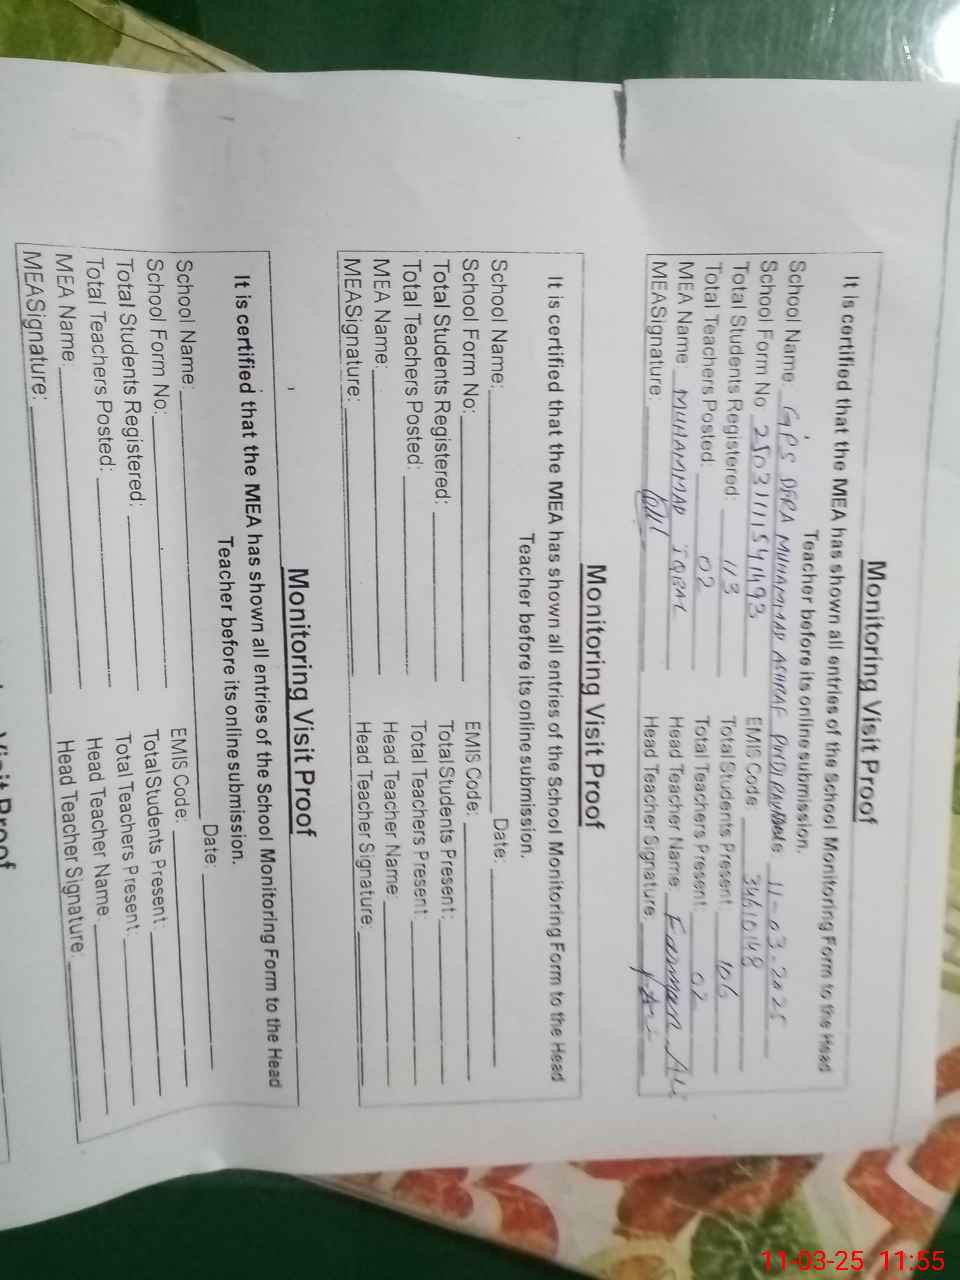 Monitoring Visit Proof
It is certified that the MEA has shown all entries of the School Monitoring Form to the Head
Teacher before its online submission.
School Name: GPS DERA MUHAMMAD ASHRAF Date: 11-03-2025
School Form No: EMIS Code: 34610148
Total Students Registered: 113 Total Students Present: 106
Total Teachers Posted: 02 Total Teachers Present: 02
MEA Name: MUHAMMAD IQBAL Head Teacher Name: Ali
MEASignature: Head Teacher Signature:
Monitoring Visit Proof
It is certified that the MEA has shown all entries of the School Monitoring Form to the Head
Teacher before its online submission.
School Name: Date:
School Form No: EMIS Code:
Total Students Registered: Total Students Present:
Total Teachers Posted: Total Teachers Present:
MEA Name: Head Teacher Name:
MEASignature: Head Teacher Signature:
Monitoring Visit Proof
It is certified that the MEA has shown all entries of the School Monitoring Form to the Head
Teacher before its online submission.
School Name: Date:
School Form No: EMIS Code:
Total Students Registered: Total Students Present:
Total Teachers Posted: Total Teachers Present:
MEA Name: Head Teacher Name:
MEASignature: Head Teacher Signature:
Visit Proof
11-03-25 11:55